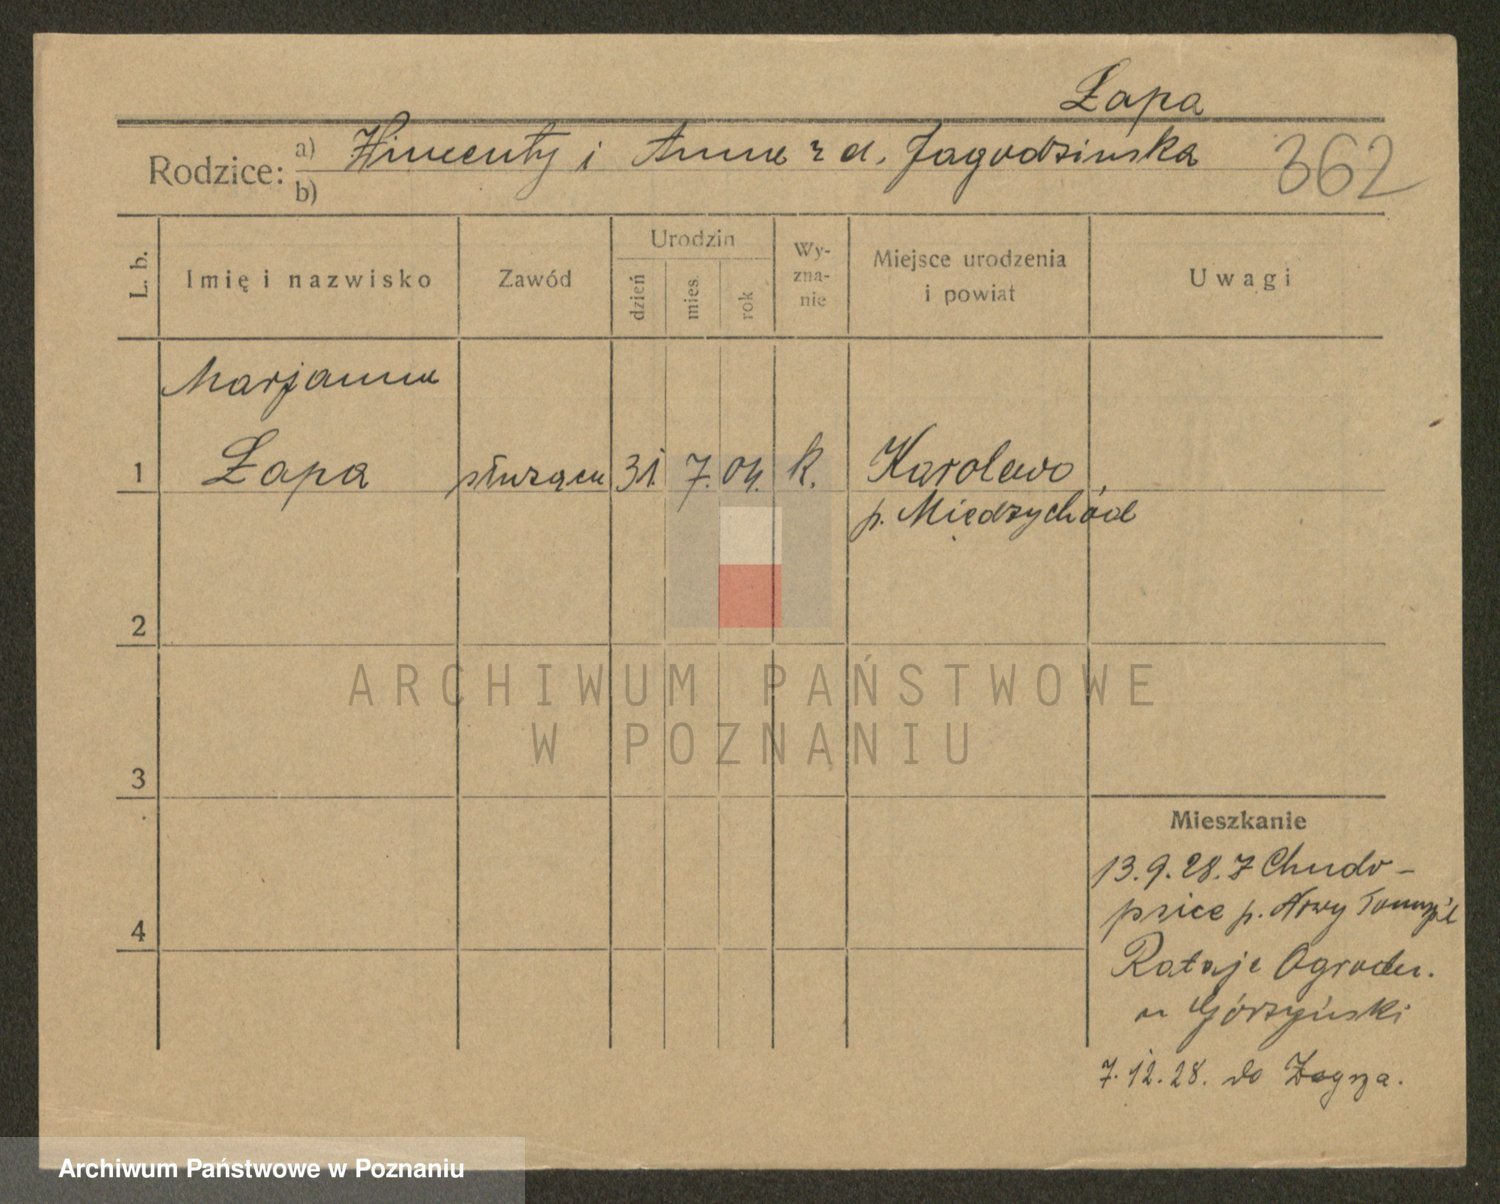 Łapa
Rodzice: a) Wincenty i Anna z d. Jagodzinska
b)
362
L. b.
Imię i nazwisko
Zawód
Urodzin
dzień
mies.
rok
Wy-
zna-
nie
Miejsce urodzenia
i powiat
Uwagi
Marjanna
1 Łapa służąca 31. 7. 04. k. Karolewo
p. Międzychód
2
ARCHIWUM PAŃSTWOWE
W POZNANIU
3
4
Mieszkanie
13.9.28. z Chudo-
psice p. Nowy Tomyśl
Rataje Ogrodn.
u Górzyński
7.12.28. do
Archiwum Państwowe w Poznaniu